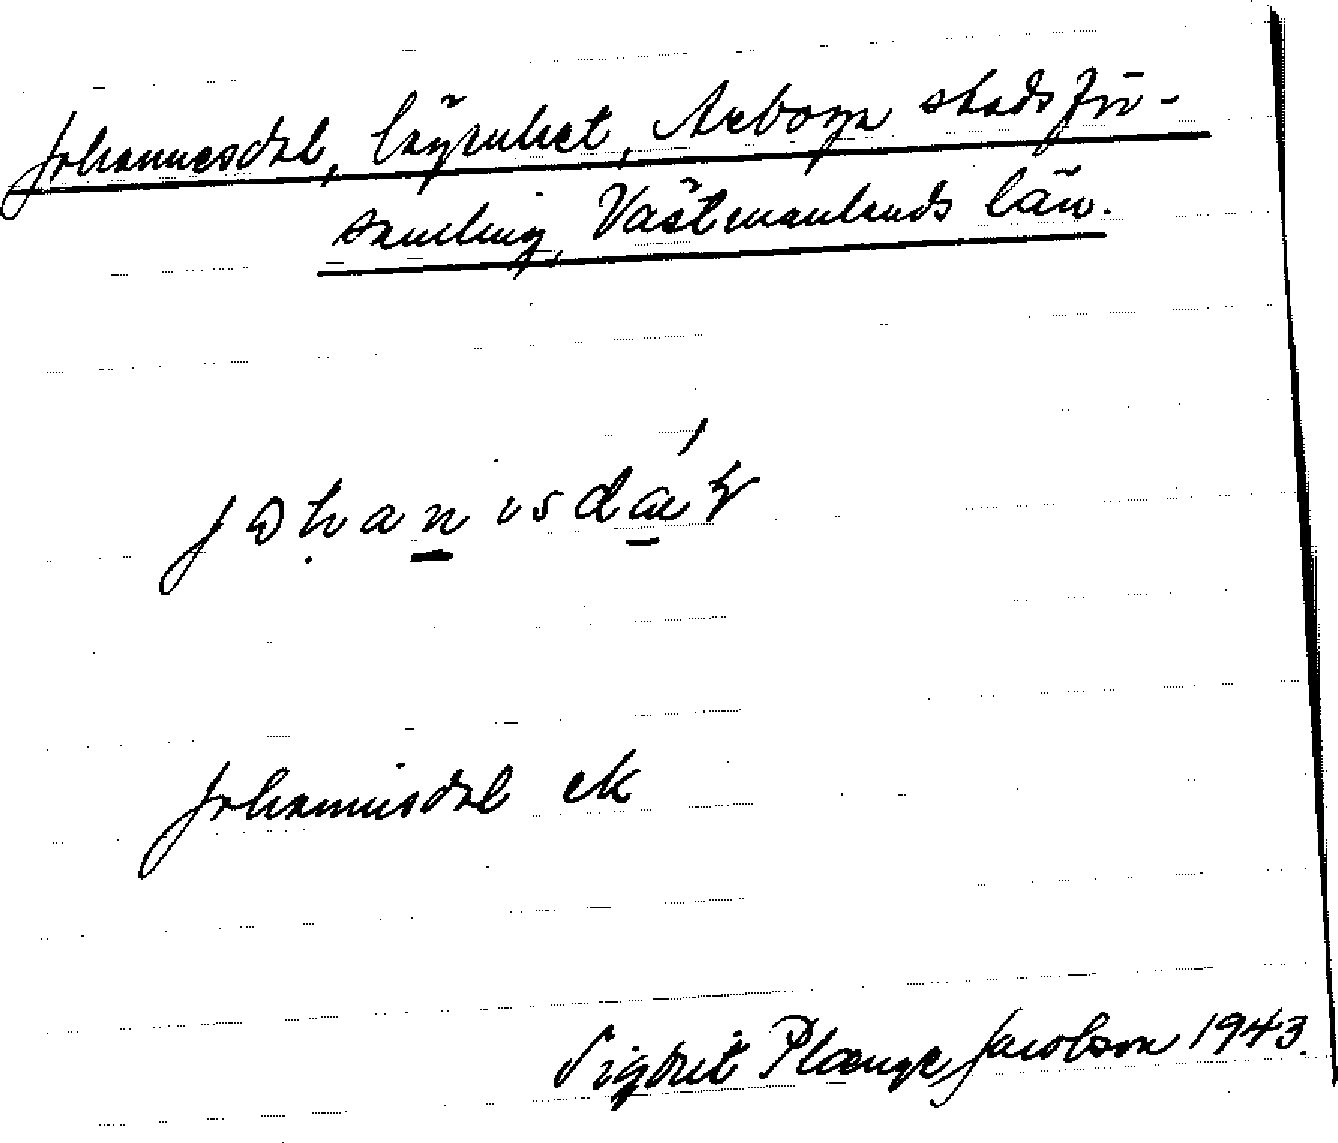 Johannesdal, lägenhet, Arboga stadsför-
samling, Västmanlands län.
Johannisdal ek
Sigurd Plænge Jacobson 1943.